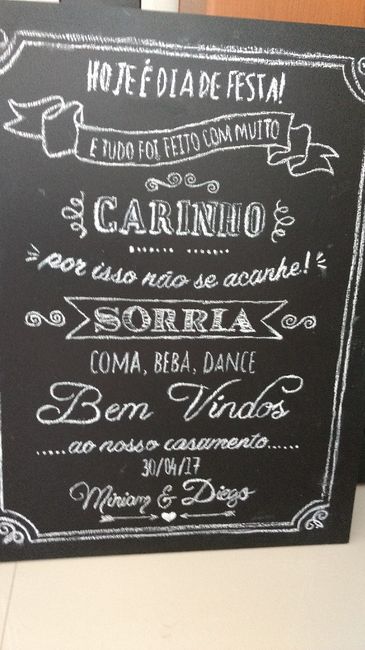 HOJE É DIA DE FESTA!
E TUDO FOI FEITO COM MUITO
CARINHO
por isso não se acanhe!
SORRIA
COMA, BEBA, DANCE
Bem Vindos
.....ao nosso casamento......
30/04/17
Miriam & Diego